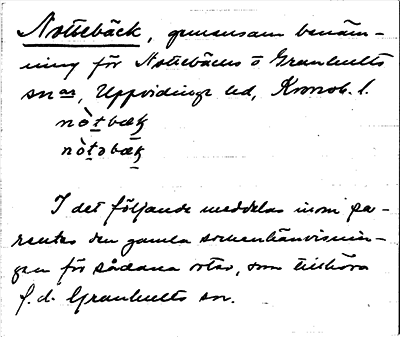 Nottebäck, gemensam benäm-
ning för Nottebäcks o Granhults
snar, Uppvidinge hd, Kronob. l.
nò̀tbæk
nò̀təbæk
I det följande meddelas inom pa-
rentes den gamla sockenhänvisnin-
gen för sådana orter, som tillhöra
f. d. Granhults sn.